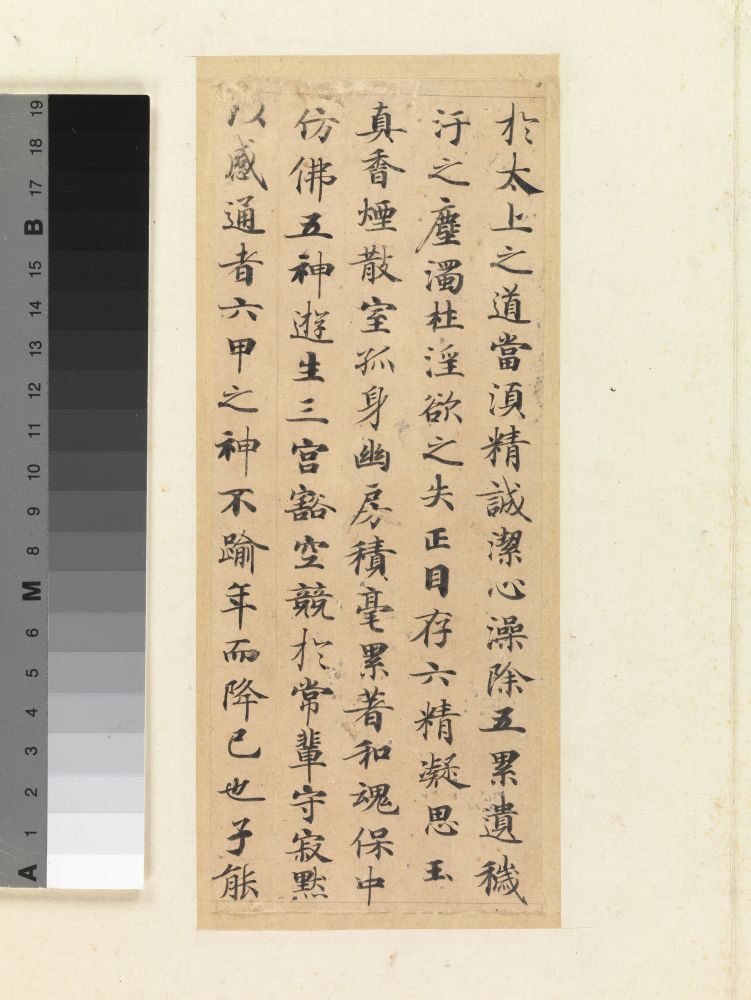 於太上之道當須精誠潔心澡除五累遺穢
汙之塵濁杜淫欲之失正目存六精凝思玉
真香煙散室孤身幽房積毫累著和魂保中
仿佛五神遊生三宮豁空競於常輩守寂默
以感通者六甲之神不踰年而降已也子能
A 1 2 3 4 5 6 M 8 9 10 11 12 13 14 15 B 17 18 19